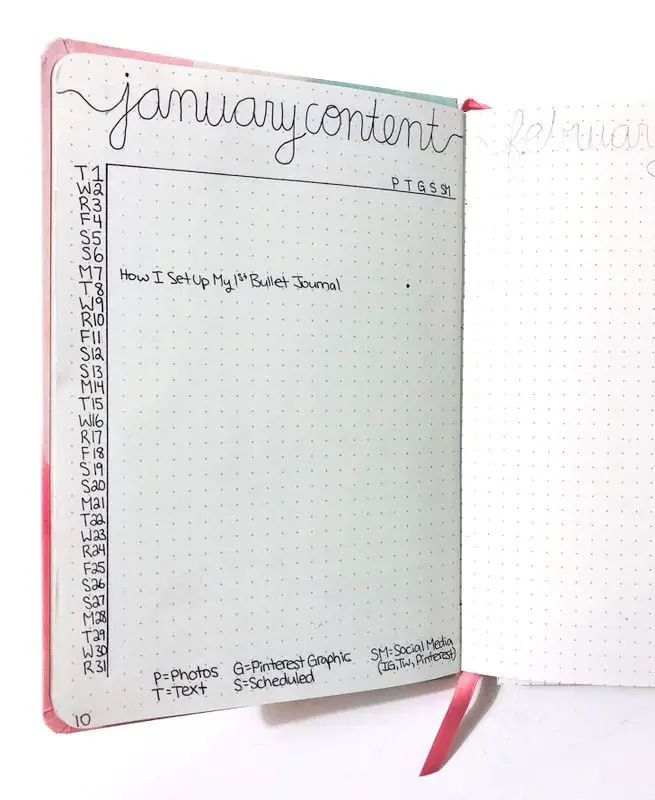 january content
february
P T G S SM
T 1
W 2
R 3
F 4
S 5
S 6
M 7 How I Set Up My 1st Bullet Journal
T 8
W 9
R 10
F 11
S 12
S 13
M 14
T 15
W 16
R 17
F 18
S 19
S 20
M 21
T 22
W 23
R 24
F 25
S 26
S 27
M 28
T 29
W 30
R 31
P=Photos G=Pinterest Graphic SM=Social Media
T=Text S=Scheduled (IG, TW, Pinterest)
10